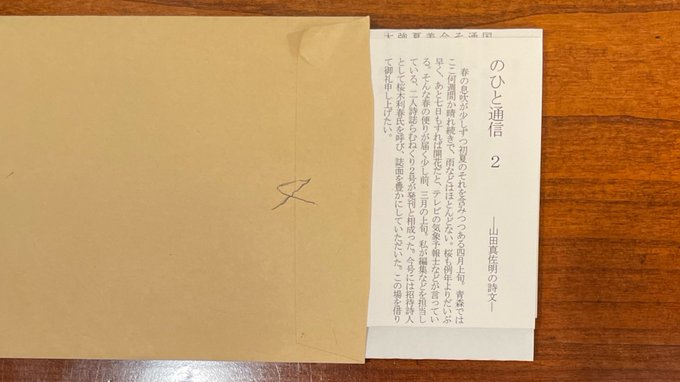 のひと通信 2
―山田真佐明の詩文―
春の息吹が少しずつ初夏のそれを含みつつある四月上旬。青森では
ここ何週間か晴れ続きで、雨などはほとんどない。桜も例年よりだいぶ
早く、あと七日もすれば開花だと、テレビの気象予報士などが言ってい
る。そんな春の便りが届く少し前、三月の上旬。私が編集などを担当し
ている、二人詩誌らむねくり2号が発刊と相成った。今号には招待詩人
として桜木利春氏を呼び、誌面を豊かにしていただいた。この場を借り
て御礼申し上げたい。